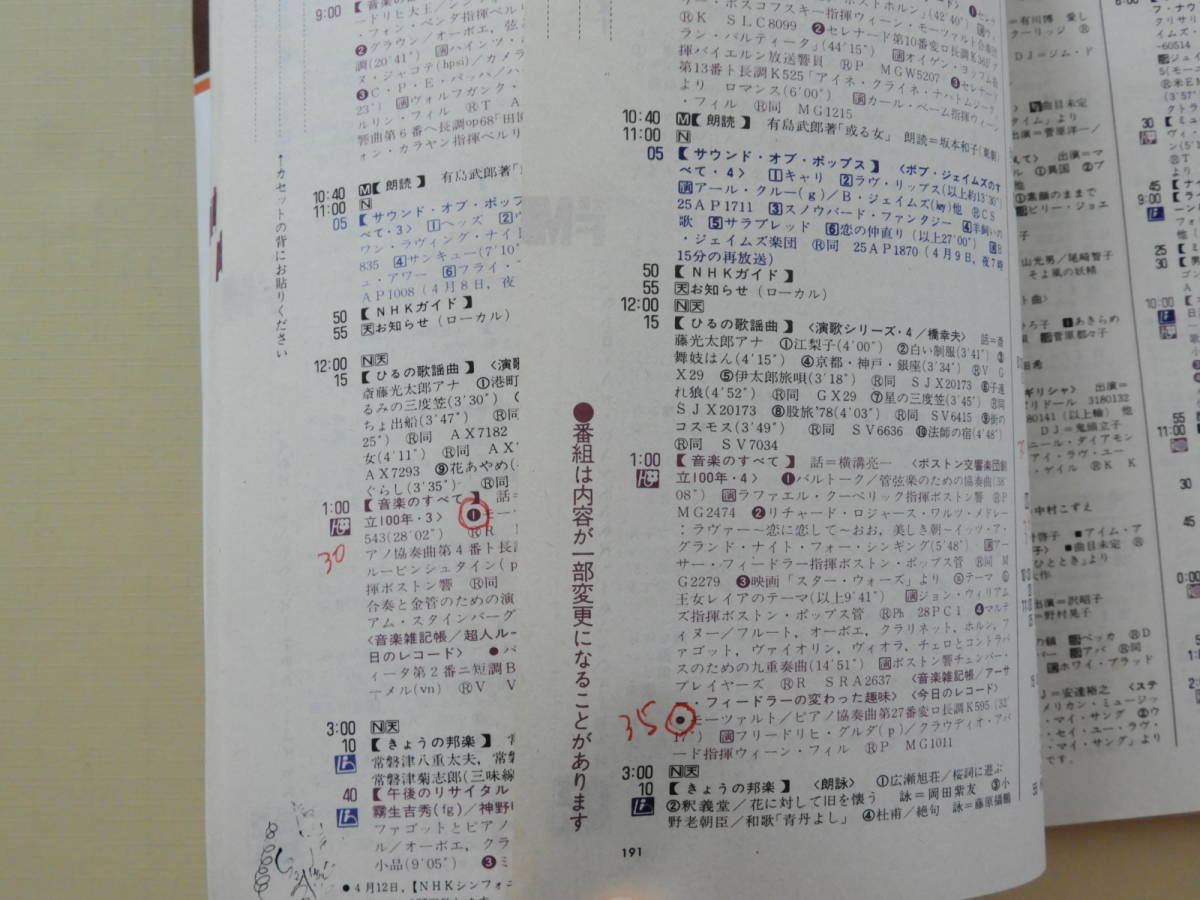 9:00
ードリヒ大王／シンフ
・フォン・ベンダ指揮ベルリ
❷グラウン／オーボエ，弦
調(20′41″) 演ハインツ・ホ
ヌ・ジャコテ(hpsi)／カメラ
❸C・P・E・バッハ／ハ
23″) 演ヴォルフガング・
ルリン・フィル ⓇT A
響曲第6番ヘ長調op68「田園
ォン・カラヤン指揮ベルリ
←カセットの背にお貼りください
10:40 M【朗読】 有島武郎著「
11:00 N
05 【サウンド・オブ・ポップ
べて・3〉 1ヘッズ 2
ワン・ラヴィング・ナイト
835 4サンキュー(7′10″
ュ・アワー 6フライ・
AP1008 (4月8日，夜
50 【NHKガイド】
55 天お知らせ (ローカル)
12:00 N天
15 【ひるの歌謡曲】 〈演歌
斎藤光太郎アナ ①港町
るみの三度笠(3′30″)
ちょ出船(3′47″) Ⓡ同
25″) Ⓡ同 AX7182
女(4′11″) Ⓡ同 AX
AX7293 ⑨花あやめ(
ぐらし(3′35″) Ⓡ同
1:00 【音楽のすべて】 話=
立100年・3〉 ❶モー
30
543(28′02″) ⓇR
アノ協奏曲第4番ト長調
ルービンシュタイン(p
揮ボストン響 Ⓡ同
合奏と金管のための演
アム・スタインバーグ
〈音楽雑記帳／超人ルー
日のレコード〉 ●バ
ィータ第2番ニ短調B
ーメル(vn) ⓇV V
3:00 N天
10 【きょうの邦楽】
常磐津八重太夫，常磐
常磐津菊志郎(三味線
40 【午後のリサイタル
霧生吉秀(fg)／神野
ファゴットとピアノ
ル／オーボエ，クラ
小品(9′05″) ❸ミ
●4月12日，【NHKシンフォニ
●番組は内容が一部変更になることがあります
ー・ボスコフスキー指揮ウィーン・モーツァルト合奏団
ⓇK SLC8099 ❷セレナード第10番変ロ長調K361「グ
ラン・パルティータ」(44′15″) 演オイゲン・ヨッフム指
揮バイエルン放送響員 ⓇP MGW5207 ❸セレナード
第13番ト長調K525「アイネ・クライネ・ナハトムジーク」
より ロマンス(6′00″) 演カール・ベーム指揮ウィーン
・フィル Ⓡ同 MG1215
10:40 M【朗読】 有島武郎著「或る女」 朗読=坂本和子
11:00 N
05 【サウンド・オブ・ポップス】 〈ボブ・ジェイムズのす
べて・4〉 1キャリ 2ラヴ・リップス(以上約13′30″)
演アール・クルー(g)／B・ジェイムズ(key)他 ⓇCS
25AP1711 3スノウバード・ファンタジー 4羊飼いの
歌 5サラブレッド 6恋の仲直り (以上27′00″) 演B
・ジェイムズ楽団 Ⓡ同 25AP1870 (4月9日，夜7時
15分の再放送)
50 【NHKガイド】
55 天お知らせ (ローカル)
12:00 N天
15 【ひるの歌謡曲】 〈演歌シリーズ・4／橋幸夫〉 話=斎
藤光太郎アナ ①江梨子(4′00″) ②白い制服(3′41″) ③
舞妓はん(4′15″) ④京都・神戸・銀座(3′34″) ⓇV G
X29 ⑤伊太郎旅唄(3′18″) Ⓡ同 SJX20173 ⑥子連
れ狼(4′52″) Ⓡ同 GX29 ⑦星の三度笠(3′45″) Ⓡ同
SJX20173 ⑧股旅'78(4′03″) Ⓡ同 SV6415 ⑨街の
コスモス(3′49″) Ⓡ同 SV6636 ⑩法師の宿(4′48″)
Ⓡ同 SV7034
1:00 【音楽のすべて】 話=横溝亮一 〈ボストン交響楽団創
立100年・4〉 ❶バルトーク／管弦楽のための協奏曲(38′
08″) 演ラファエル・クーベリック指揮ボストン響 ⓇP
MG2474 ❷リチャード・ロジャース・ワルツ・メドレー
：ラヴァー〜恋に恋して〜おお，美しき朝〜イッツ・ア・
グランド・ナイト・フォー・シンギング(5′48″) 演アー
サー・フィードラー指揮ボストン・ポップス管 Ⓡ同 M
G2279 ❸映画「スター・ウォーズ」より ⓐテーマ ⓑ
王女レイアのテーマ(以上9′41″) 演ジョン・ウィリアム
ズ指揮ボストン・ポップス管 ⓇPh 28PC1 ❹マルテ
ィヌー／フルート，オーボエ，クラリネット，ホルン，フ
ァゴット，ヴァイオリン，ヴィオラ，チェロとコントラバ
スのための九重奏曲(14′51″) 演ボストン響チェンバー・
プレイヤーズ ⓇR SRA2637 〈音楽雑記帳／アーサ
・フィードラーの変わった趣味〉 〈今日のレコード〉
35
●モーツァルト／ピアノ協奏曲第27番変ロ長調K595 (32′
17″) 演フリードリヒ・グルダ(p)／クラウディオ・アバ
ード指揮ウィーン・フィル ⓇP MG1011
3:00 N天
10 【きょうの邦楽】 〈朗詠〉 ①広瀬旭荘／桜詞に遊ぶ
②釈義堂／花に対して旧を懐う 詠=岡田紫友 ③小
野老朝臣／和歌「青丹よし」 ④杜甫／絶句 詠=藤原摂鵬
191
=有川博 愛し
DJ=ジム・ド
曲目未定
タイム」より
出演=菅原洋一／
①素顔のままで
ビリー・ジョエ
山光男／尾崎智子
そよ風の妖精
あきらめ
菅原都々子
ギリシャ〉 出演=
リドール 3180132
80141 (以上輸) 他
DJ=鬼頭立子
ニール・ダイアモン
アイ・ラヴ・ユー
・ゲイル ⓇK K
=中村こずえ
■アイム・ア
■曲目未定
ひととき」より
出演=沢昭子
=野村晃子
ベッカ ⓇD
アバ Ⓡ同
ホワイ・ブラッド
J=安達裕之 〈ステ
メリカン・ミュージッ
・マイ・サング
・セイ・ユー・ラヴ・
・マイ・サング」より
30
45
9:00
25
30
10:00
55
11:00
30
0:00
です。